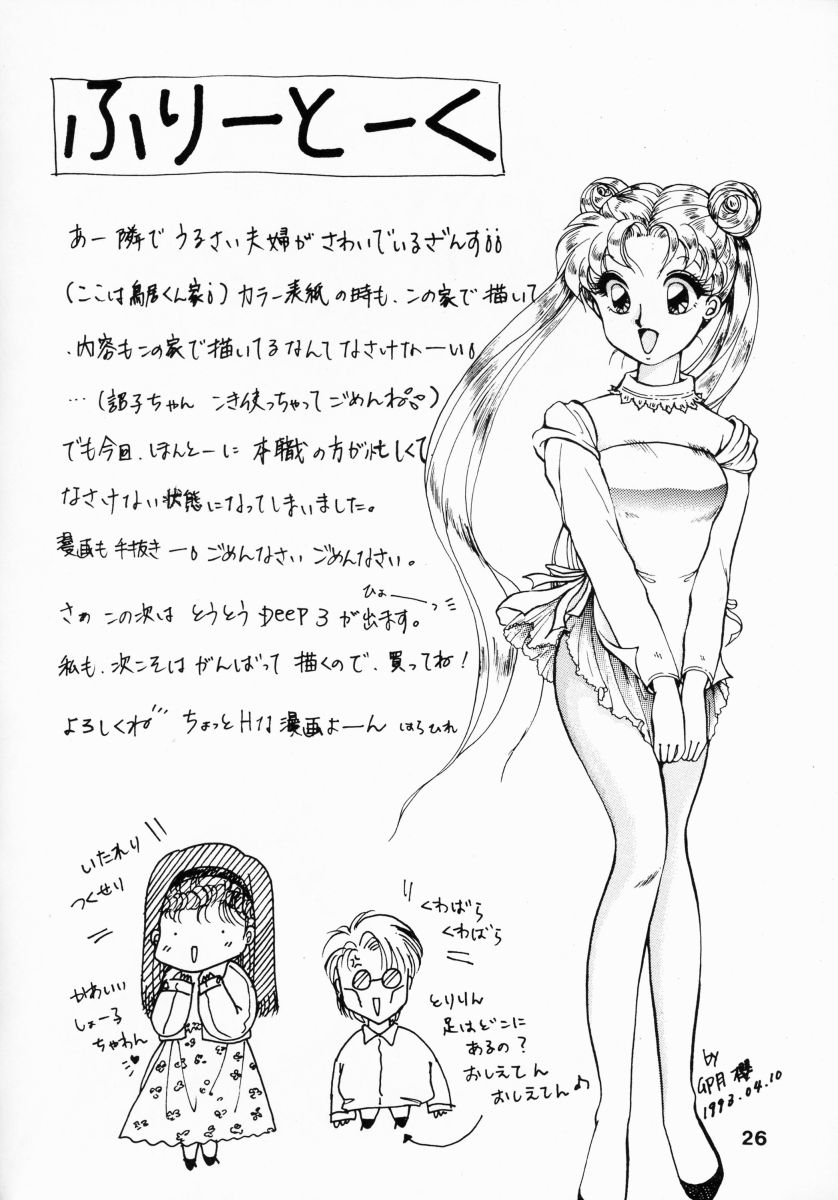 ふりーとーく
あー隣でうるさい夫婦がさわいでいるざんすii
(ここは鳥居くん家i)カラー表紙の時も、この家で描いて
、内容もこの家で描いてるなんてなさけなーい。
…(詔子ちゃん こき使っちゃってごめんね。)
でも今回、ほんとーに本職の方が忙しくて
なさけない状態になってしまいました。
漫画も手抜きー。ごめんなさいごめんなさい。
ひょーっ
さぁこの次はとうとうDeeP3が出ます。
私も、次こそはがんばって描くので、買ってね!
よろしくね ちょっとHな漫画よーん はらひれ
いたれり
つくせり
かわいい
しょー子
ちゃわん
くわばら
くわばら
とりりん
足はどこに
あるの?
おしえてん
おしえてん♪
by
櫻
1993.04.10
26